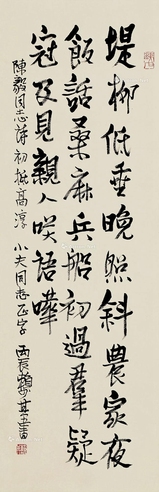 堤柳低垂晚照斜農家夜
飯話桑麻兵船初過群疑
寇及見親人笑語嘩
陳毅同志詩初抵高淳 小夫同志正字 丙辰 書